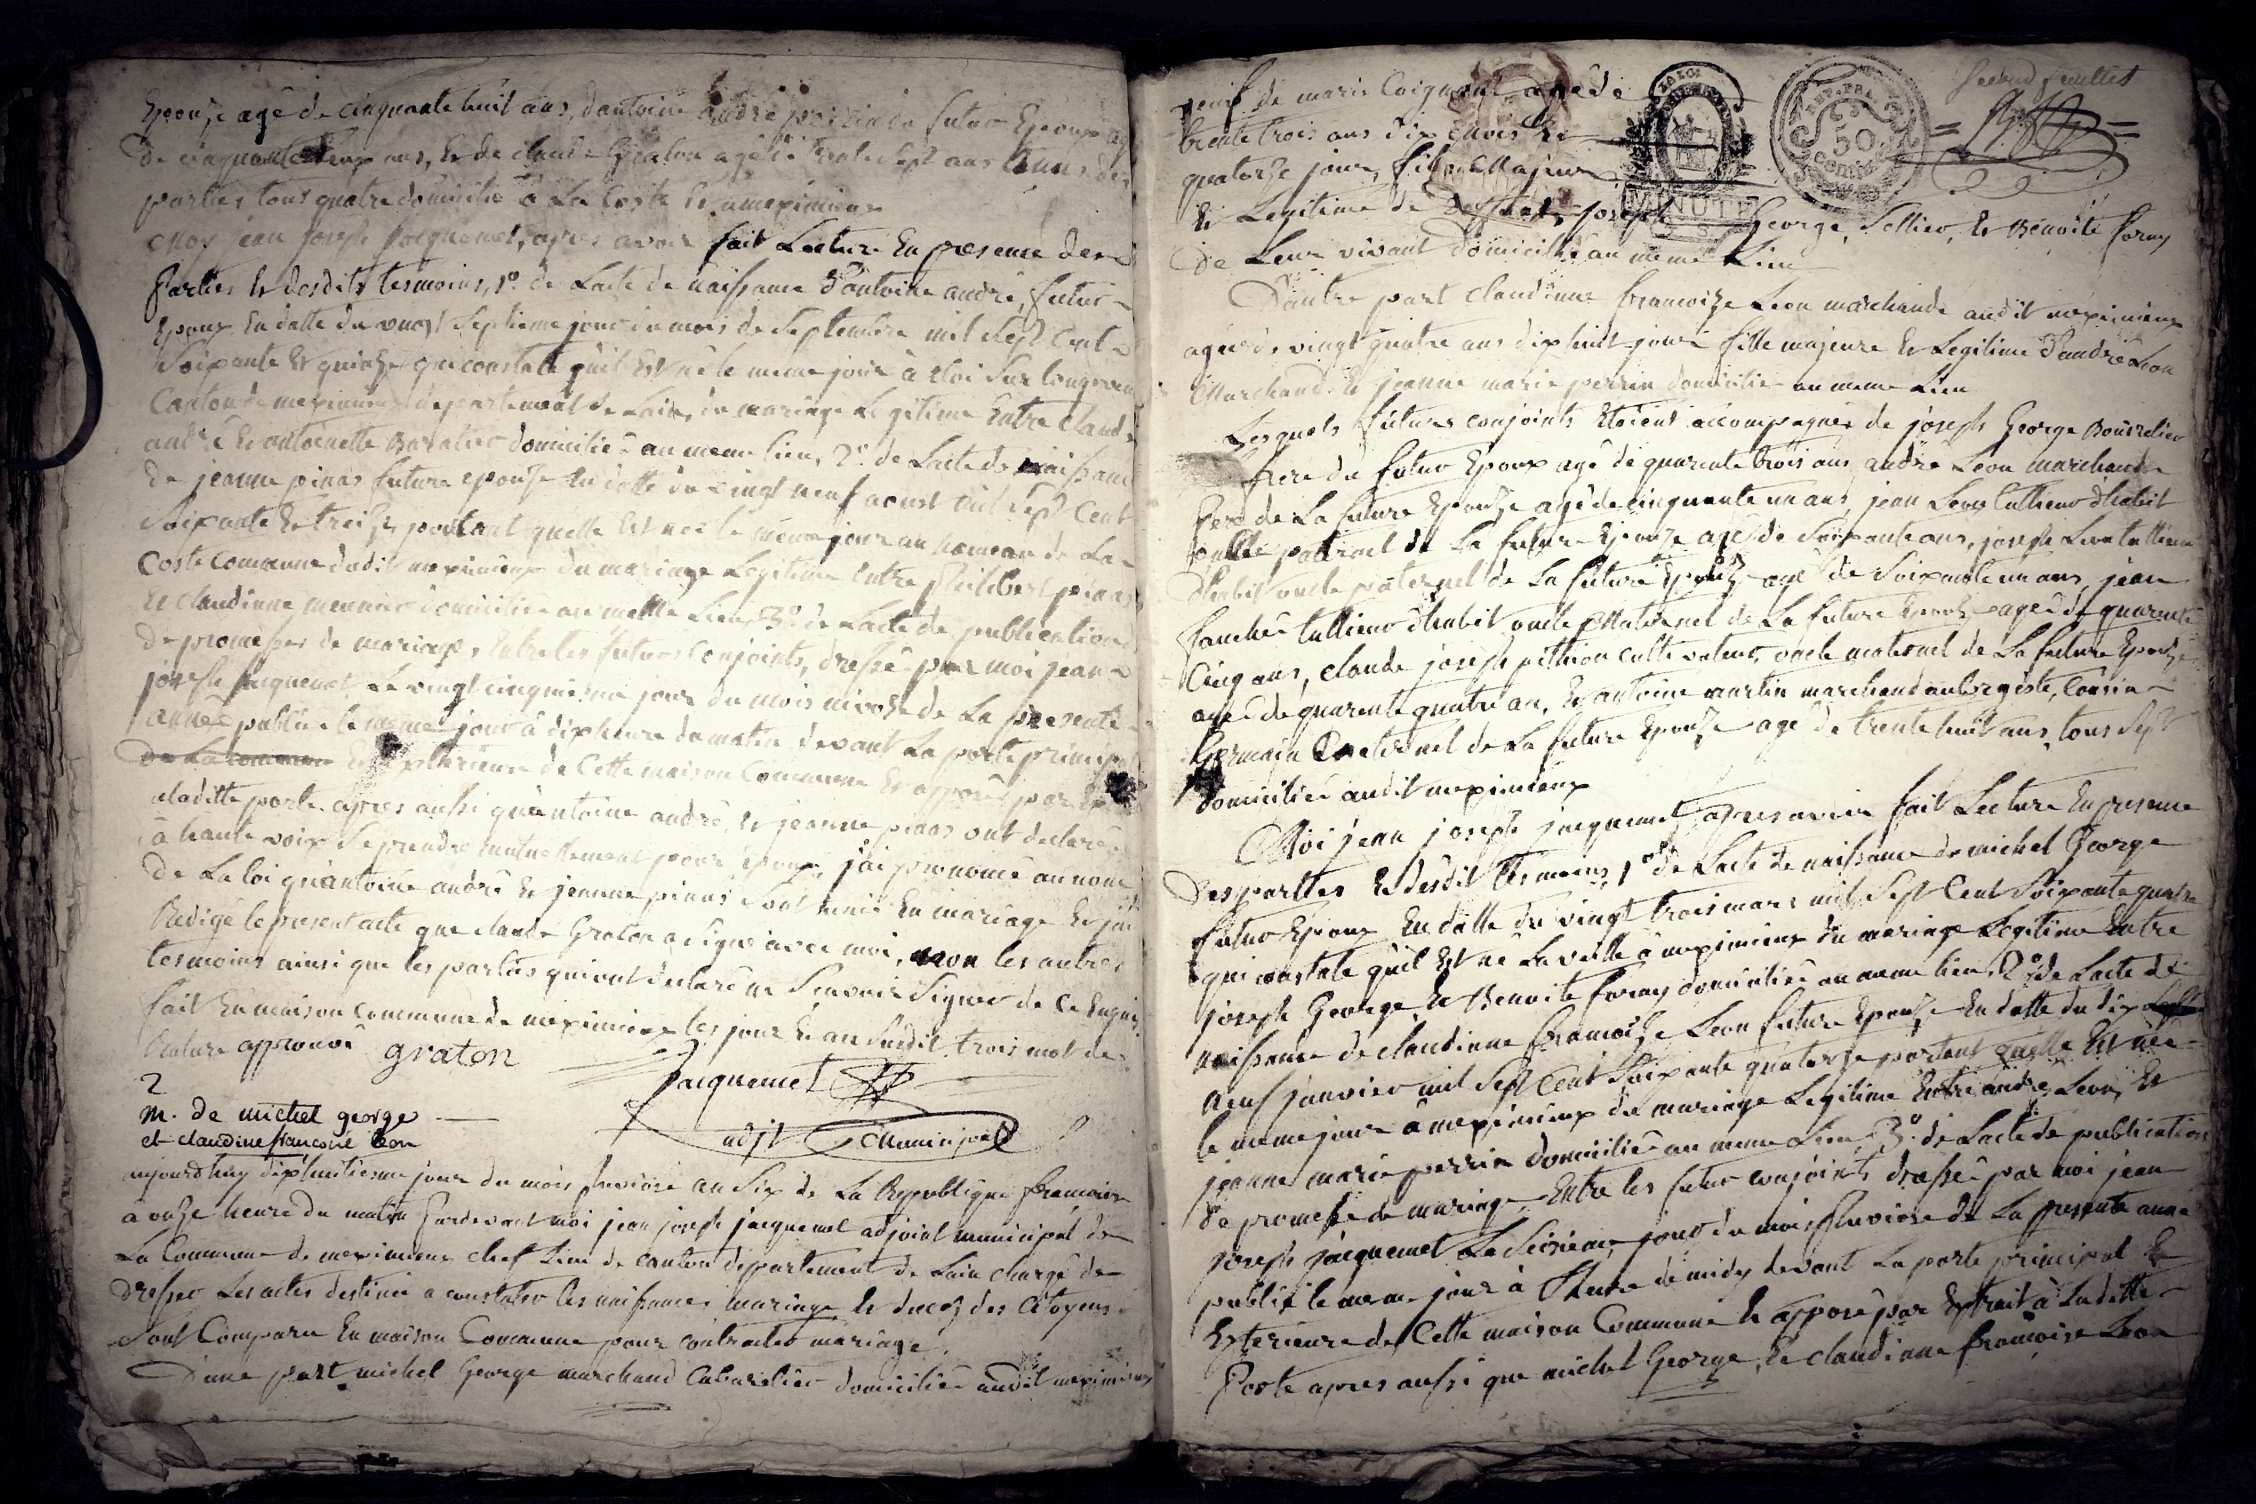 Epouse agé de cinquante huit ans, d'antoine andré futur Epoux agé
de cinquante deux ans, Et de claude Graton agé de trente sept ans tenus des
parties tous quatre domicilié à La Coste Et à meximieux
Moy jean joseph jacquemet, apres avoir fait Lecture En presence des
Parties Et desdits tesmoins, 1º de Lacte de naissance D'antoine andré, futur
Epoux En datte du vingt Septieme jour du mois de Septembre mil Sept Cent
Soixante Et quinze qui constate qu'il Est né le meme jour à
Canton de meximieux departement de Lain, du mariage Legitime Entre Claude
andré Et antoinette domicilié au meme lieu, 2º de Lacte de naissance
de jeanne pinas future epouse En datte du vingt neuf aoust mil Sept Cent
Soixante Et treize portant quelle Est née le meme jour au hameau de La
Coste Commune dudit meximieux du mariage Legitime Entre philibert pinas
Et claudinne meunier domicilié au meme Lieu, 3º de Lacte de publication
de promesses de mariage, Entre les futurs Conjoints, dressé par moi jean
joseph jacquemet Le vingt cinquieme jour du mois nivose de La presente
année publié le meme jour à dix heure du matin devant La porte principal
de La commune Et Exterieure de Cette maison Commune Et apposé par
aladitte porte apres aussi qu'antoine andré, Et jeanne pinas ont declaré
à haute voix Se prendre mutuellement pour Epoux, j'ai prononcé au nom
de La loi qu'antoine andré Et jeanne pinas Sont unis En mariage Et j'ai
Redigé le present acte que claude Graton a Signé avec moi, non les autres
tesmoins ainsi que les parties qui ont declaré ne Scavoir Signer de Ce Enquis
fait En maison commune de meximieux les jour Et an Susdit trois mot de
Rature approuvé graton
Jacquemet
adjt Municipal
2
m. de michel george
et claudine francoise leon
aujourdhuy dixhuitieme jour du mois pluviose an Six de La Republique francoise
a onze heure du matin Pardevant moi jean joseph jacquemet adjoint municipal de
La Commune de meximieux chef Lieu de canton departement de Lain chargé de
dresser Les actes destiné a constater les naissances mariage Et decez des Citoyens
Sont Comparu En maison Commune pour contracter mariage,
D'une part michel George marchand Cabaretier domicilié audit meximieux
Second feuillet
veuf de marie Coignoux agé de
trente trois ans dix mois Et
quatorze jours, fils Majeur
Et Legitime de deffunts joseph George, Sellier, Et Benoite foray
de Leur vivant domicilié au meme Lieu
REP. FRA.
50
centimes
MINUTE
D'autre part claudinne francoize Leon marchande audit meximieux
agée de vingt quatre ans dix huit jours fille majeure Et Legitime D'andré Leon
Marchand Et jeanne marie perrin domicilié au meme Lieu
Lesquels futures conjoints Etoient accompagnés de joseph George Bourrelier
frere du futur Epoux agé de quarente trois ans, andré Leon marchand
Pere de La future Epouse agé de cinquante un ans, jean Leon tallieur d'habit
oncle paternel de La future Epouse agé de Soixante ans, joseph Leon tallieur
d'habit oncle paternel de La future Epouse agé de Soixante un ans, jean
fauché tallieur d'habit oncle Maternel de La future Epouse agé de quarente
Cinq ans, claude joseph pithion cultivateur, oncle maternel de La future Epouse
agé de quarente quatre an, Et antoine martin marchand aubergiste, Cousin
Germain maternel de La future Epouse agé de trente huit ans, tous Sept
domicilié audit meximieux
Moi jean joseph jacquemet, apres avoir fait Lecture En presence
des parties Et desdit tesmoins, 1º de Lacte de naissance de michel George
futur Epoux En datte du vingt trois mars mil Sept Cent Soixante quatre
qui constate qu'il Est né La veille à meximieux du mariage Legitime Entre
joseph George, Et Benoite foray domicilié au meme lieu, 2º de Lacte de
naissance de claudinne francoize Leon future Epouse En datte du dix
neuf janvier mil Sept Cent Soixante quatorze portant quelle Est née
le meme jour à meximieux du mariage Legitime Entre andré Leon, Et
jeanne marie perrin domicilié au meme Lieu, 3º de Lacte de publication
de promesse de mariage, Entre les futur conjoints dressé par moi jean
joseph jacquemet Le Seizieme jour du mois pluviose de La presente année
publié le meme jour à Lheure de midy devant La porte principal Et
Exterieure de Cette maison Commune Et apposé par Extrait à Laditte
Porte apres aussi que michel George, Et claudinne francoise Leon